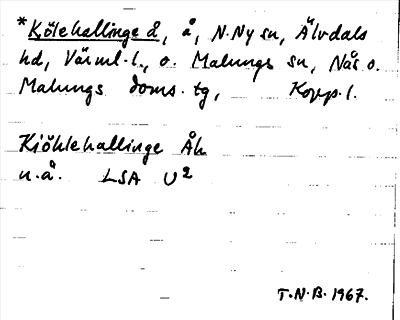 *Kölehallinge å, å, N. Ny sn, Älvdals
hd, Värml. l., o. Malungs sn, Nås o.
Malungs doms. tg, Kopp. l.
Kiöhlehallinge Åh
n. å. LSA U2
T.N.B. 1967.